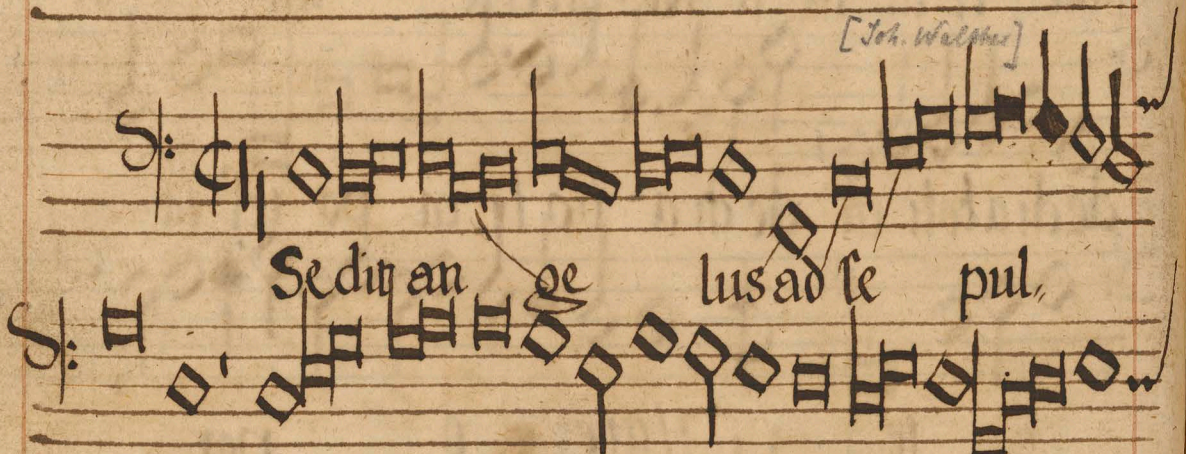 [Joh. Walther]
Sedit an ge lus ad se pul„